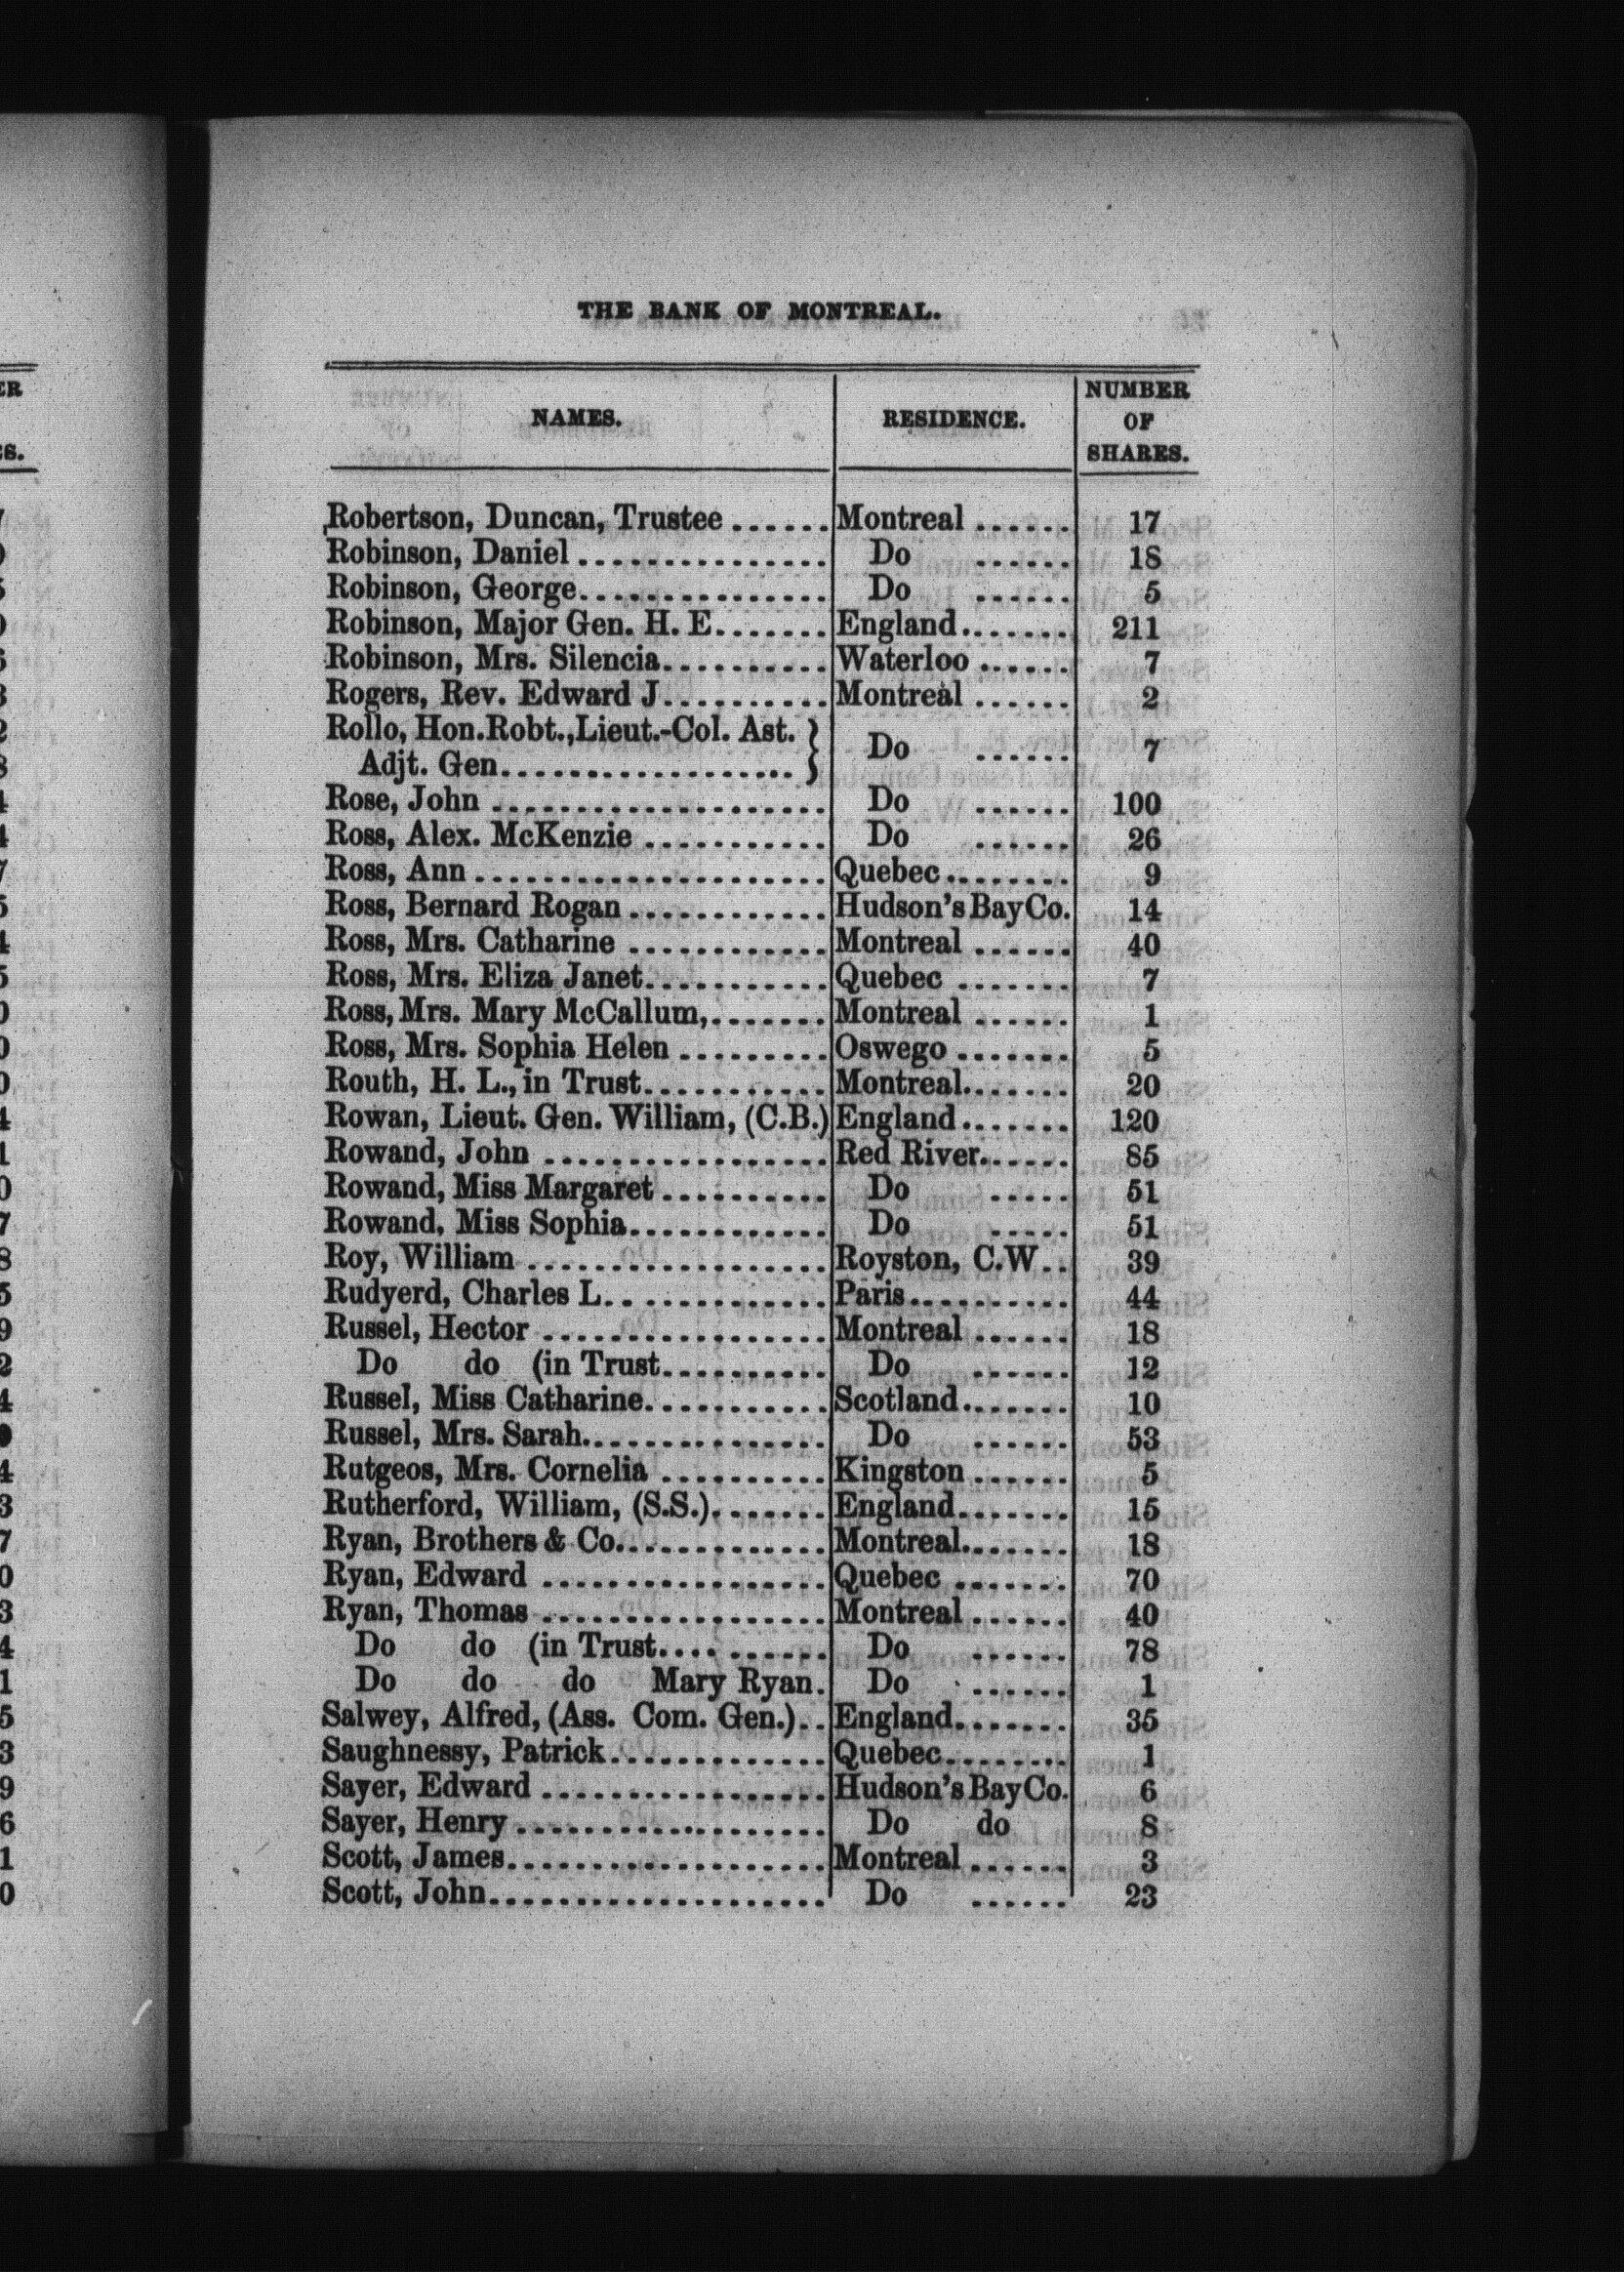 THE BANK OF MONTREAL.
NAMES. RESIDENCE. NUMBER OF SHARES.
Robertson, Duncan, Trustee ...... Montreal ...... 17
Robinson, Daniel ............... Do ...... 18
Robinson, George............... Do ...... 5
Robinson, Major Gen. H. E....... England....... 211
Robinson, Mrs. Silencia.......... Waterloo ...... 7
Rogers, Rev. Edward J.......... Montreal ...... 2
Rollo, Hon. Robt., Lieut.-Col. Ast.
Adjt. Gen.................. } Do ...... 7
Rose, John .................... Do ...... 100
Ross, Alex. McKenzie ........... Do ...... 26
Ross, Ann ..................... Quebec........ 9
Ross, Bernard Rogan ............ Hudson's Bay Co. 14
Ross, Mrs. Catharine ............ Montreal ...... 40
Ross, Mrs. Eliza Janet........... Quebec ....... 7
Ross, Mrs. Mary McCallum,....... Montreal ...... 1
Ross, Mrs. Sophia Helen ......... Oswego ....... 5
Routh, H. L., in Trust........... Montreal....... 20
Rowan, Lieut. Gen. William, (C.B.) England....... 120
Rowand, John ................. Red River...... 85
Rowand, Miss Margaret .......... Do ..... 51
Rowand, Miss Sophia............ Do ..... 51
Roy, William .................. Royston, C.W.. 39
Rudyerd, Charles L.............. Paris.......... 44
Russel, Hector ................. Montreal ...... 18
Do do (in Trust.......... Do ...... 12
Russel, Miss Catharine........... Scotland....... 10
Russel, Mrs. Sarah............... Do ...... 53
Rutgeos, Mrs. Cornelia .......... Kingston ...... 5
Rutherford, William, (S.S.)....... England....... 15
Ryan, Brothers & Co............. Montreal....... 18
Ryan, Edward ................. Quebec ....... 70
Ryan, Thomas ................. Montreal ...... 40
Do do (in Trust.......... Do ...... 78
Do do do Mary Ryan. Do ...... 1
Salwey, Alfred, (Ass. Com. Gen.).. England....... 35
Saughnessy, Patrick............. Quebec........ 1
Sayer, Edward ................. Hudson's Bay Co. 6
Sayer, Henry ................... Do do 8
Scott, James................... Montreal ...... 3
Scott, John.................... Do ...... 23